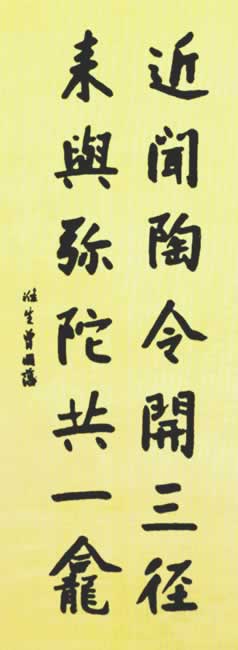 近聞陶令開三径
来與弥陀共一龕
滌生曾國藩